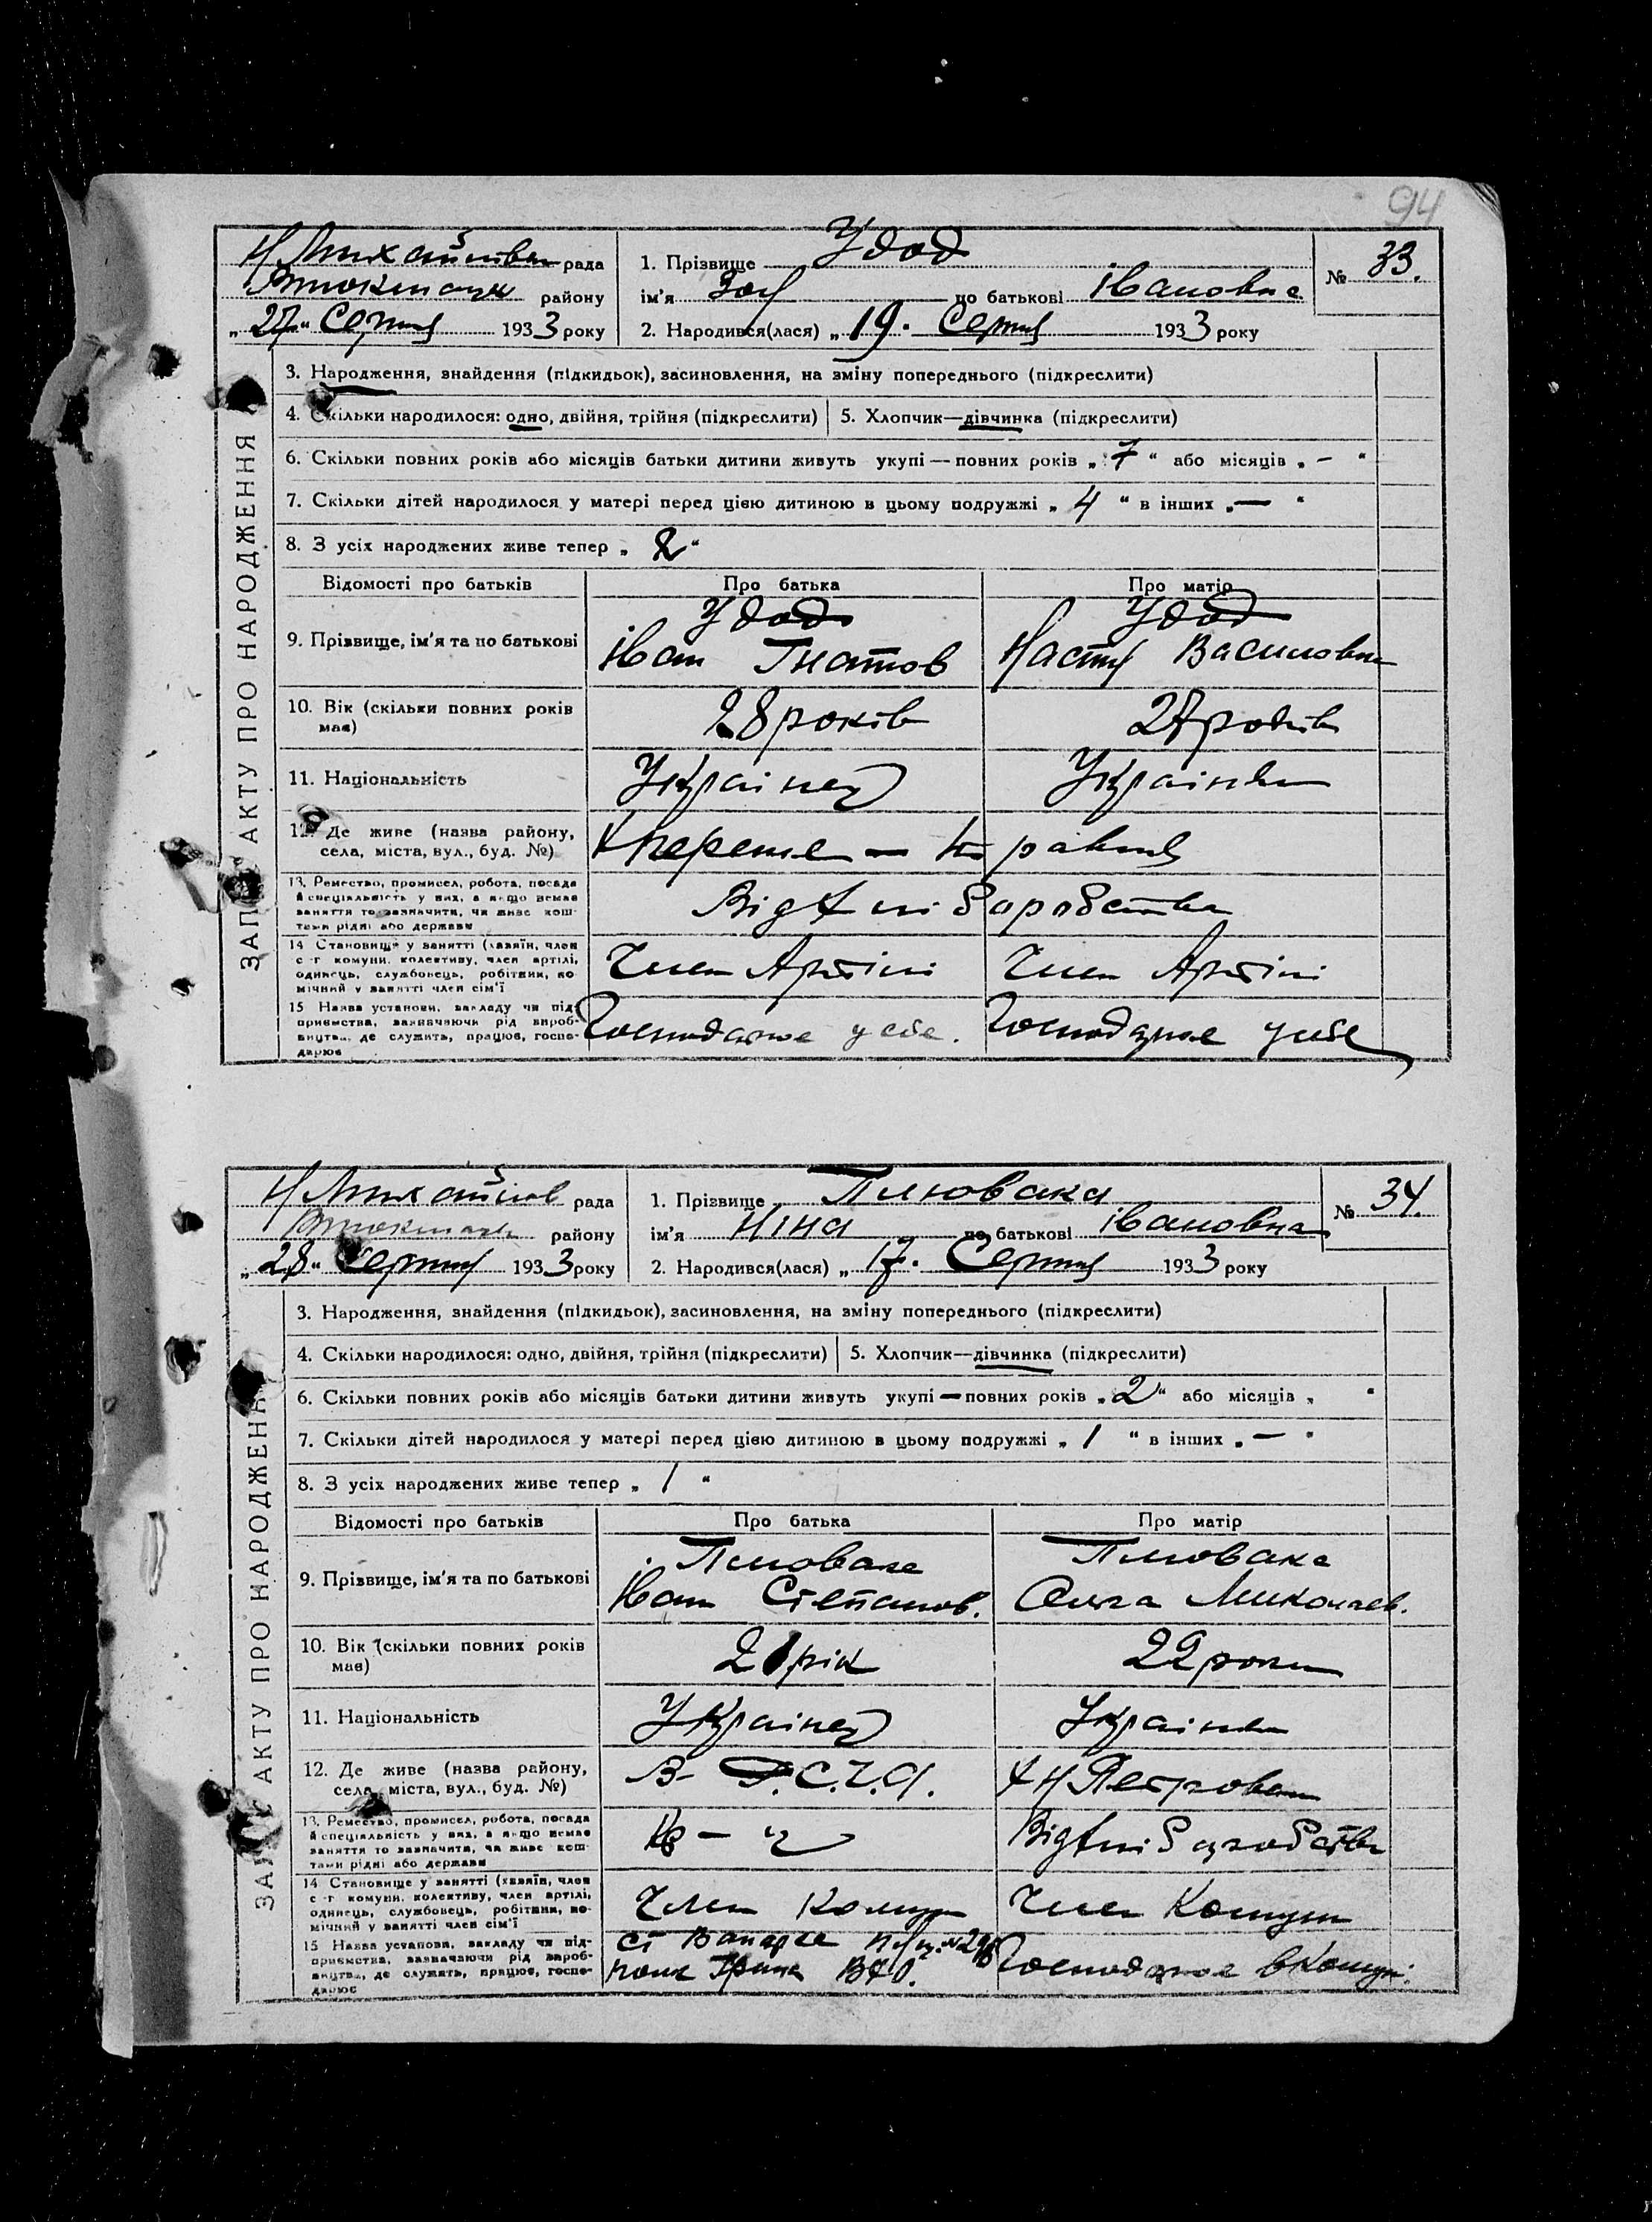 94
Н Михайлівська рада
району
„27“ Серпня 1933 року
1. Прізвище Удод
ім'я Зоя по батькові Івановна
2. Народився(лася) „19. Серпня 1933 року
№ 33.
ЗАПИС АКТУ ПРО НАРОДЖЕННЯ
3. Народження, знайдення (підкидьок), засиновлення, на зміну попереднього (підкреслити)
4. Скільки народилося: одно, двійня, трійня (підкреслити) 5. Хлопчик—дівчинка (підкреслити)
6. Скільки повних років або місяців батьки дитини живуть укупі—повних років „7“ або місяців „-“
7. Скільки дітей народилося у матері перед цією дитиною в цьому подружжі „4“ в інших „—“
8. З усіх народжених живе тепер „2“
Відомості про батьків Про батька Про матір
9. Прізвище, ім'я та по батькові
Удод Удод
Іван Гнатов Настя Василовна
10. Вік (скільки повних років має) 28 років 27 років
11. Національність Українец Українка
12. Де живе (назва району, села, міста, вул., буд. №)
13. Ремество, промисел, робота, посада й спеціяльність у них, а якщо немає заняття то зазначити, чи живе коштами рідні або держави
14 Становище у занятті (хазяїн, член с-г комуни, колективу, член артілі, одинець, службовець, робітник, помічний у занятті член сім'ї Член Артілі Член Артілі
15 Назва установи, закладу чи підприємства, зазначаючи рід виробництва, де служить, працює, господарює Господарює у себе. Господарює у себе
Н Михайлів рада
району
„28“ Серпня 1933 року
1. Прізвище Плювака
ім'я Ніна по батькові Івановна
2. Народився(лася) „17. Серпня 1933 року
№ 34.
ЗАПИС АКТУ ПРО НАРОДЖЕННЯ
3. Народження, знайдення (підкидьок), засиновлення, на зміну попереднього (підкреслити)
4. Скільки народилося: одно, двійня, трійня (підкреслити) 5. Хлопчик—дівчинка (підкреслити)
6. Скільки повних років або місяців батьки дитини живуть укупі—повних років „2“ або місяців „ “
7. Скільки дітей народилося у матері перед цією дитиною в цьому подружжі „1“ в інших „—“
8. З усіх народжених живе тепер „1“
Відомості про батьків Про батька Про матір
9. Прізвище, ім'я та по батькові
Плювака Плювака
Іван Степанов. Ольга Миколаев.
10. Вік (скільки повних років має) 21 рік 22 роки
11. Національність Українец Українка
12. Де живе (назва району, села, міста, вул., буд. №) Н Петровка
13. Ремество, промисел, робота, посада й спеціяльність у них, а якщо немає заняття то зазначити, чи живе коштами рідні або держави
14 Становище у занятті (хазяїн, член с-г комуни, колективу, член артілі, одинець, службовець, робітник, помічний у занятті член сім'ї Член Комун Член Комун
15 Назва установи, закладу чи підприємства, зазначаючи рід виробництва, де служить, працює, господарює Господарює в Комуні.